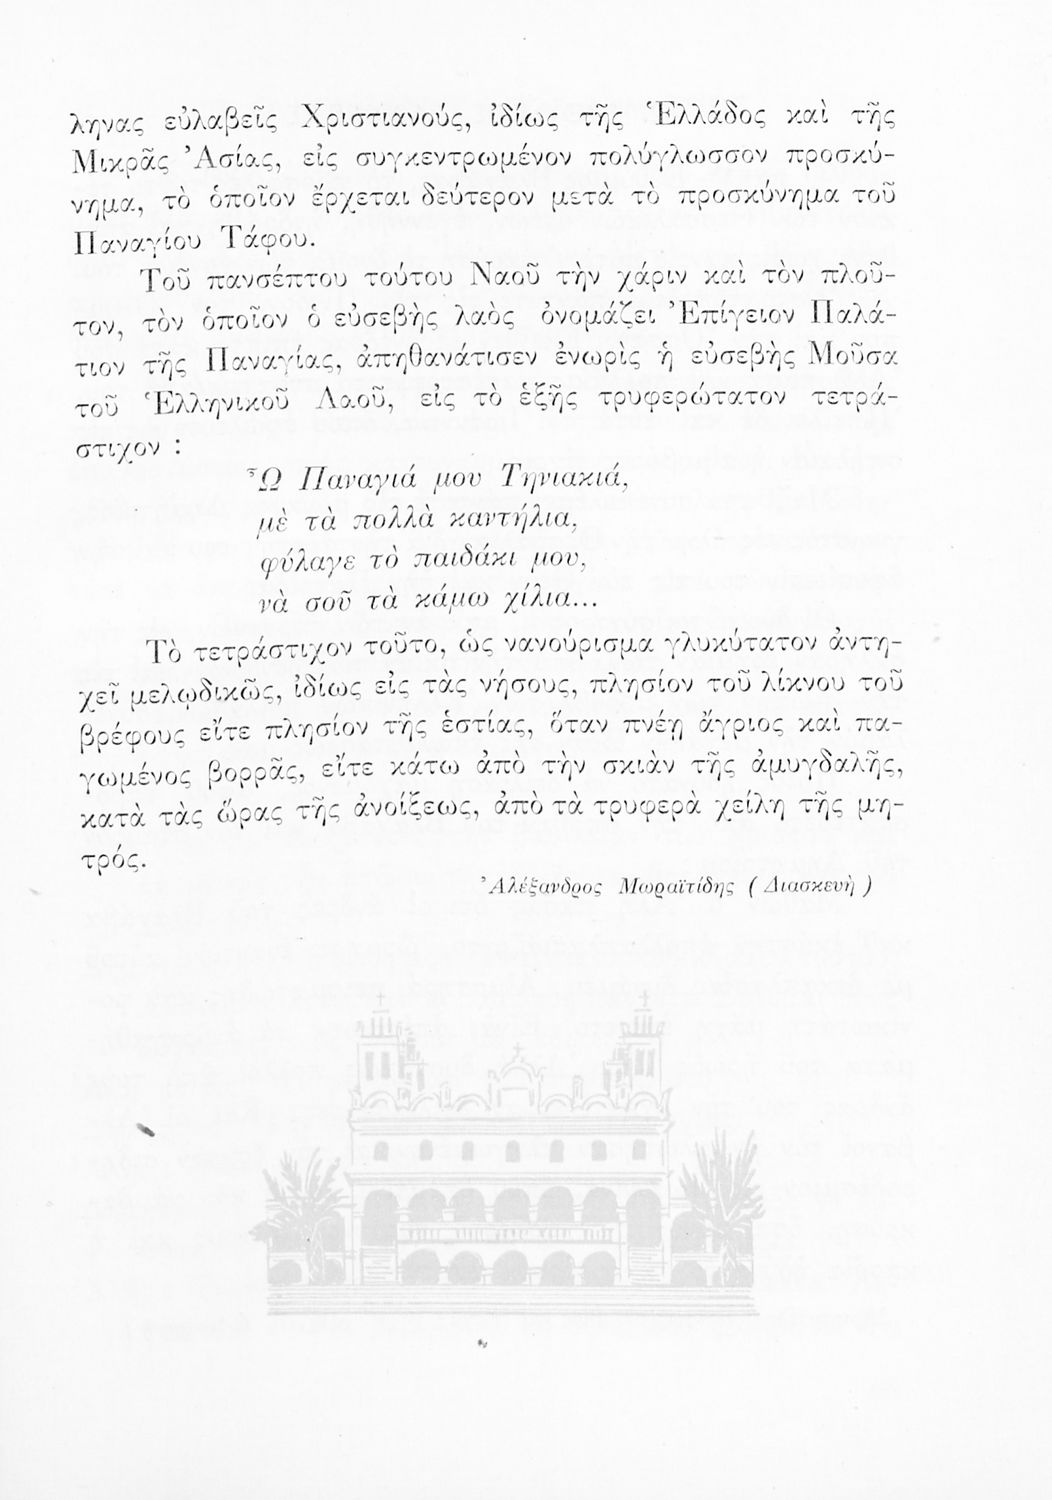 ληνας εὐλαβεῖς Χριστιανούς, ἰδίως τῆς Ἑλλάδος καὶ τῆς
Μικρᾶς Ἀσίας, εἰς συγκεντρωμένον πολύγλωσσον προσκύ-
νημα, τὸ ὁποῖον ἔρχεται δεύτερον μετὰ τὸ προσκύνημα τοῦ
Παναγίου Τάφου.
Τοῦ πανσέπτου τούτου Ναοῦ τὴν χάριν καὶ τὸν πλοῦ-
τον, τὸν ὁποῖον ὁ εὐσεβὴς λαὸς ὀνομάζει Ἐπίγειον Παλά-
τιον τῆς Παναγίας, ἀπηθανάτισεν ἐνωρὶς ἡ εὐσεβὴς Μοῦσα
τοῦ Ἑλληνικοῦ Λαοῦ, εἰς τὸ ἑξῆς τρυφερώτατον τετρά-
στιχον :
Ὦ Παναγιά μου Τηνιακιά,
μὲ τὰ πολλὰ καντήλια,
φύλαγε τὸ παιδάκι μου,
νὰ σοῦ τὰ κάμω χίλια...
Τὸ τετράστιχον τοῦτο, ὡς νανούρισμα γλυκύτατον ἀντη-
χεῖ μελῳδικῶς, ἰδίως εἰς τὰς νήσους, πλησίον τοῦ λίκνου τοῦ
βρέφους εἴτε πλησίον τῆς ἑστίας, ὅταν πνέῃ ἄγριος καὶ πα-
γωμένος βορρᾶς, εἴτε κάτω ἀπὸ τὴν σκιὰν τῆς ἀμυγδαλῆς,
κατὰ τὰς ὥρας τῆς ἀνοίξεως, ἀπὸ τὰ τρυφερὰ χείλη τῆς μη-
τρός.
Ἀλέξανδρος Μωραϊτίδης ( Διασκευὴ )